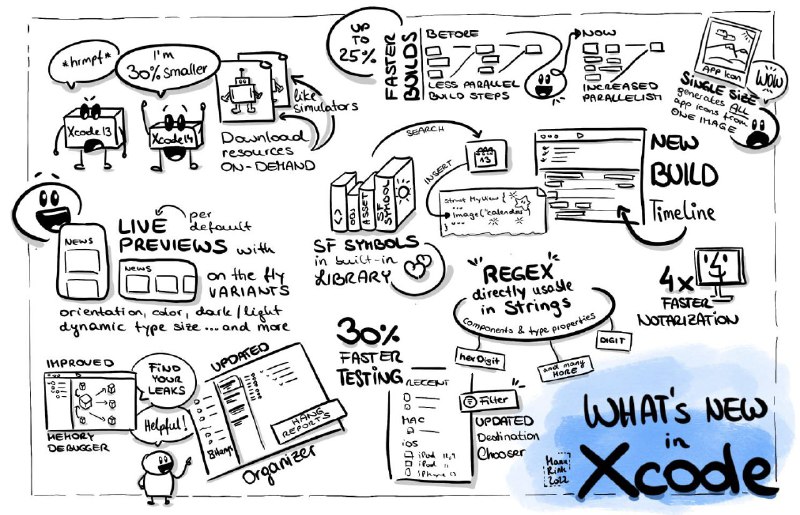 *hrmpf*
I'm
30% smaller
Xcode13
Xcode14
like
simulators
Download
resources
ON-DEMAND
UP
TO
25%
FASTER
BUILDS
BEFORE
LESS PARALLEL
BUILD STEPS
NOW
INCREASED
PARALLELISM
App Icon
SINGLE SIZE
generates ALL
app icons from
ONE IMAGE
WOW
SEARCH
INSERT
13
<>
OBJ
ASSET
SF SYMBOL
struct MyView {
...
Image("calendar
}
SF SYMBOLS
in built-in
LIBRARY
NEW
BUILD
Timeline
per
default
LIVE
PREVIEWS with
on the fly
VARIANTS
orientation, color, dark/light
dynamic type size ... and more
NEWS
NEWS
"REGEX"
directly usable
in Strings
components & type properties
hexDigit
and many
MORE
DIGIT
4x
FASTER
NOTARIZATION
IMPROVED
MEMORY
DEBUGGER
FIND
YOUR
LEAKS
Helpful!
UPDATED
HANG
REPORTS
8 Hangs
Organizer
30%
FASTER
TESTING
RECENT
MAC
iOS
iPad 11,9
iPod 11
iPhone 13
Filter
UPDATED
Destination
Chooser
WHAT'S NEW
in
Xcode
Manu
Rink
2022